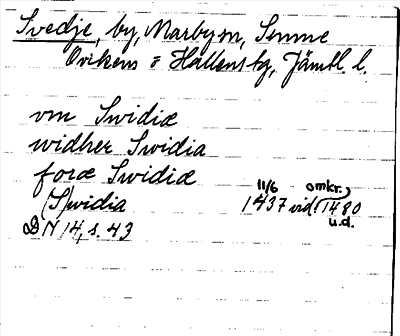 Svedje, by, Marby sn, Sunne
Ovikens o Hallens tg, Jämtl. l.
vm Swidiæ
widher Swidia
foræ Swidiæ
(S)widia 11/6 1437 vid. (omkr. 1480 u.d.)
DN 14, s. 43